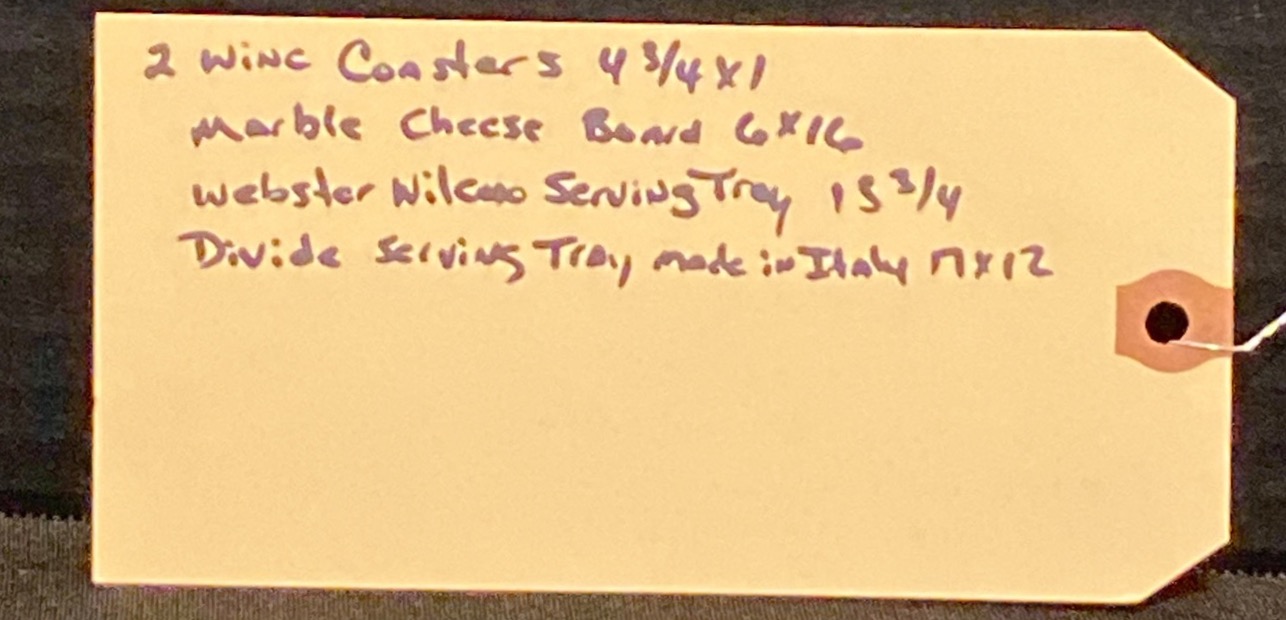 2 Wine Coasters 4 3/4 x 1
Marble Cheese Board 6 x 16
Webster Wilcox Serving Tray 15 3/4
Divide Serving Tray made in Italy 17 x 12